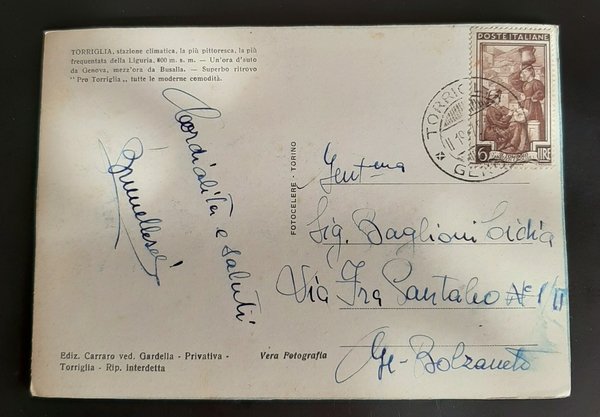 TORRIGLIA, stazione climatica, la più pittoresca, la più
frequentata della Liguria, 800 m. s. m. - Un'ora d'auto
da Genova, mezz'ora da Busalla. - Superbo ritrovo
"Pro Torriglia" tutte le moderne comodità.
Cordialità e saluti
Brunellesi
FOTOCELERE - TORINO
POSTE ITALIANE
6 LIRE
TORRIGLIA
GENOVA
Gent.ma
Sig. Baglioni Lidia
Via Fra Pantaleo N° 1/II
Ge-Bolzaneto
Ediz. Carraro ved. Gardella - Privativa -
Torriglia - Rip. interdetta
Vera Fotografia